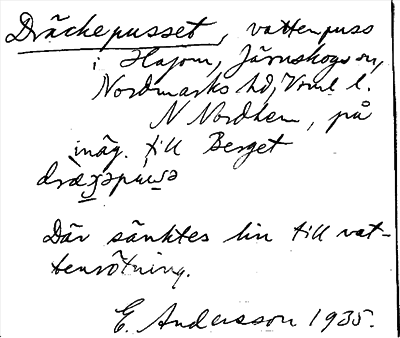 Dräckepusset, vattenpuss
i Hajom, Järnskogs sn,
Nordmarks hd, Vrml l.
N Nordhem, på
inäg. till Berget
Där sänktes lin till vat-
tenrötning.
E. Andersson 1935.